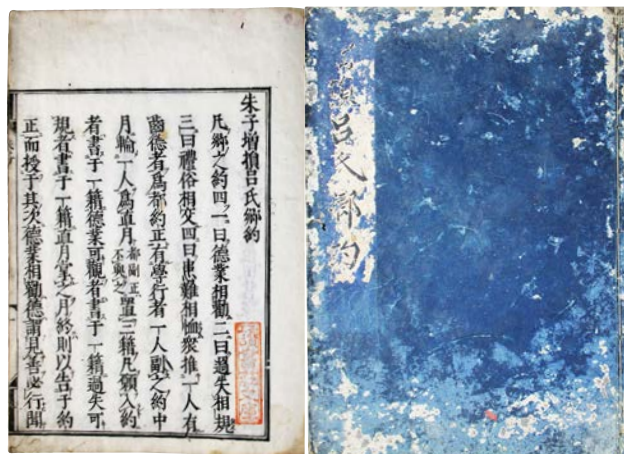 朱子增損呂氏鄉約
凡鄉之約四一曰德業相勸二曰過失相規
三曰禮俗相交四曰患難相恤衆推一人有
齒德者爲都約正有學行者二人副之約中
月輪一人爲直月都副正不與之置三籍凡願入約
者書于一籍德業可觀者書于一籍過失可
規者書于一籍直月掌之月終則以告于約
正而授于其次德業相勸德謂見善必行聞
損呂氏鄉約